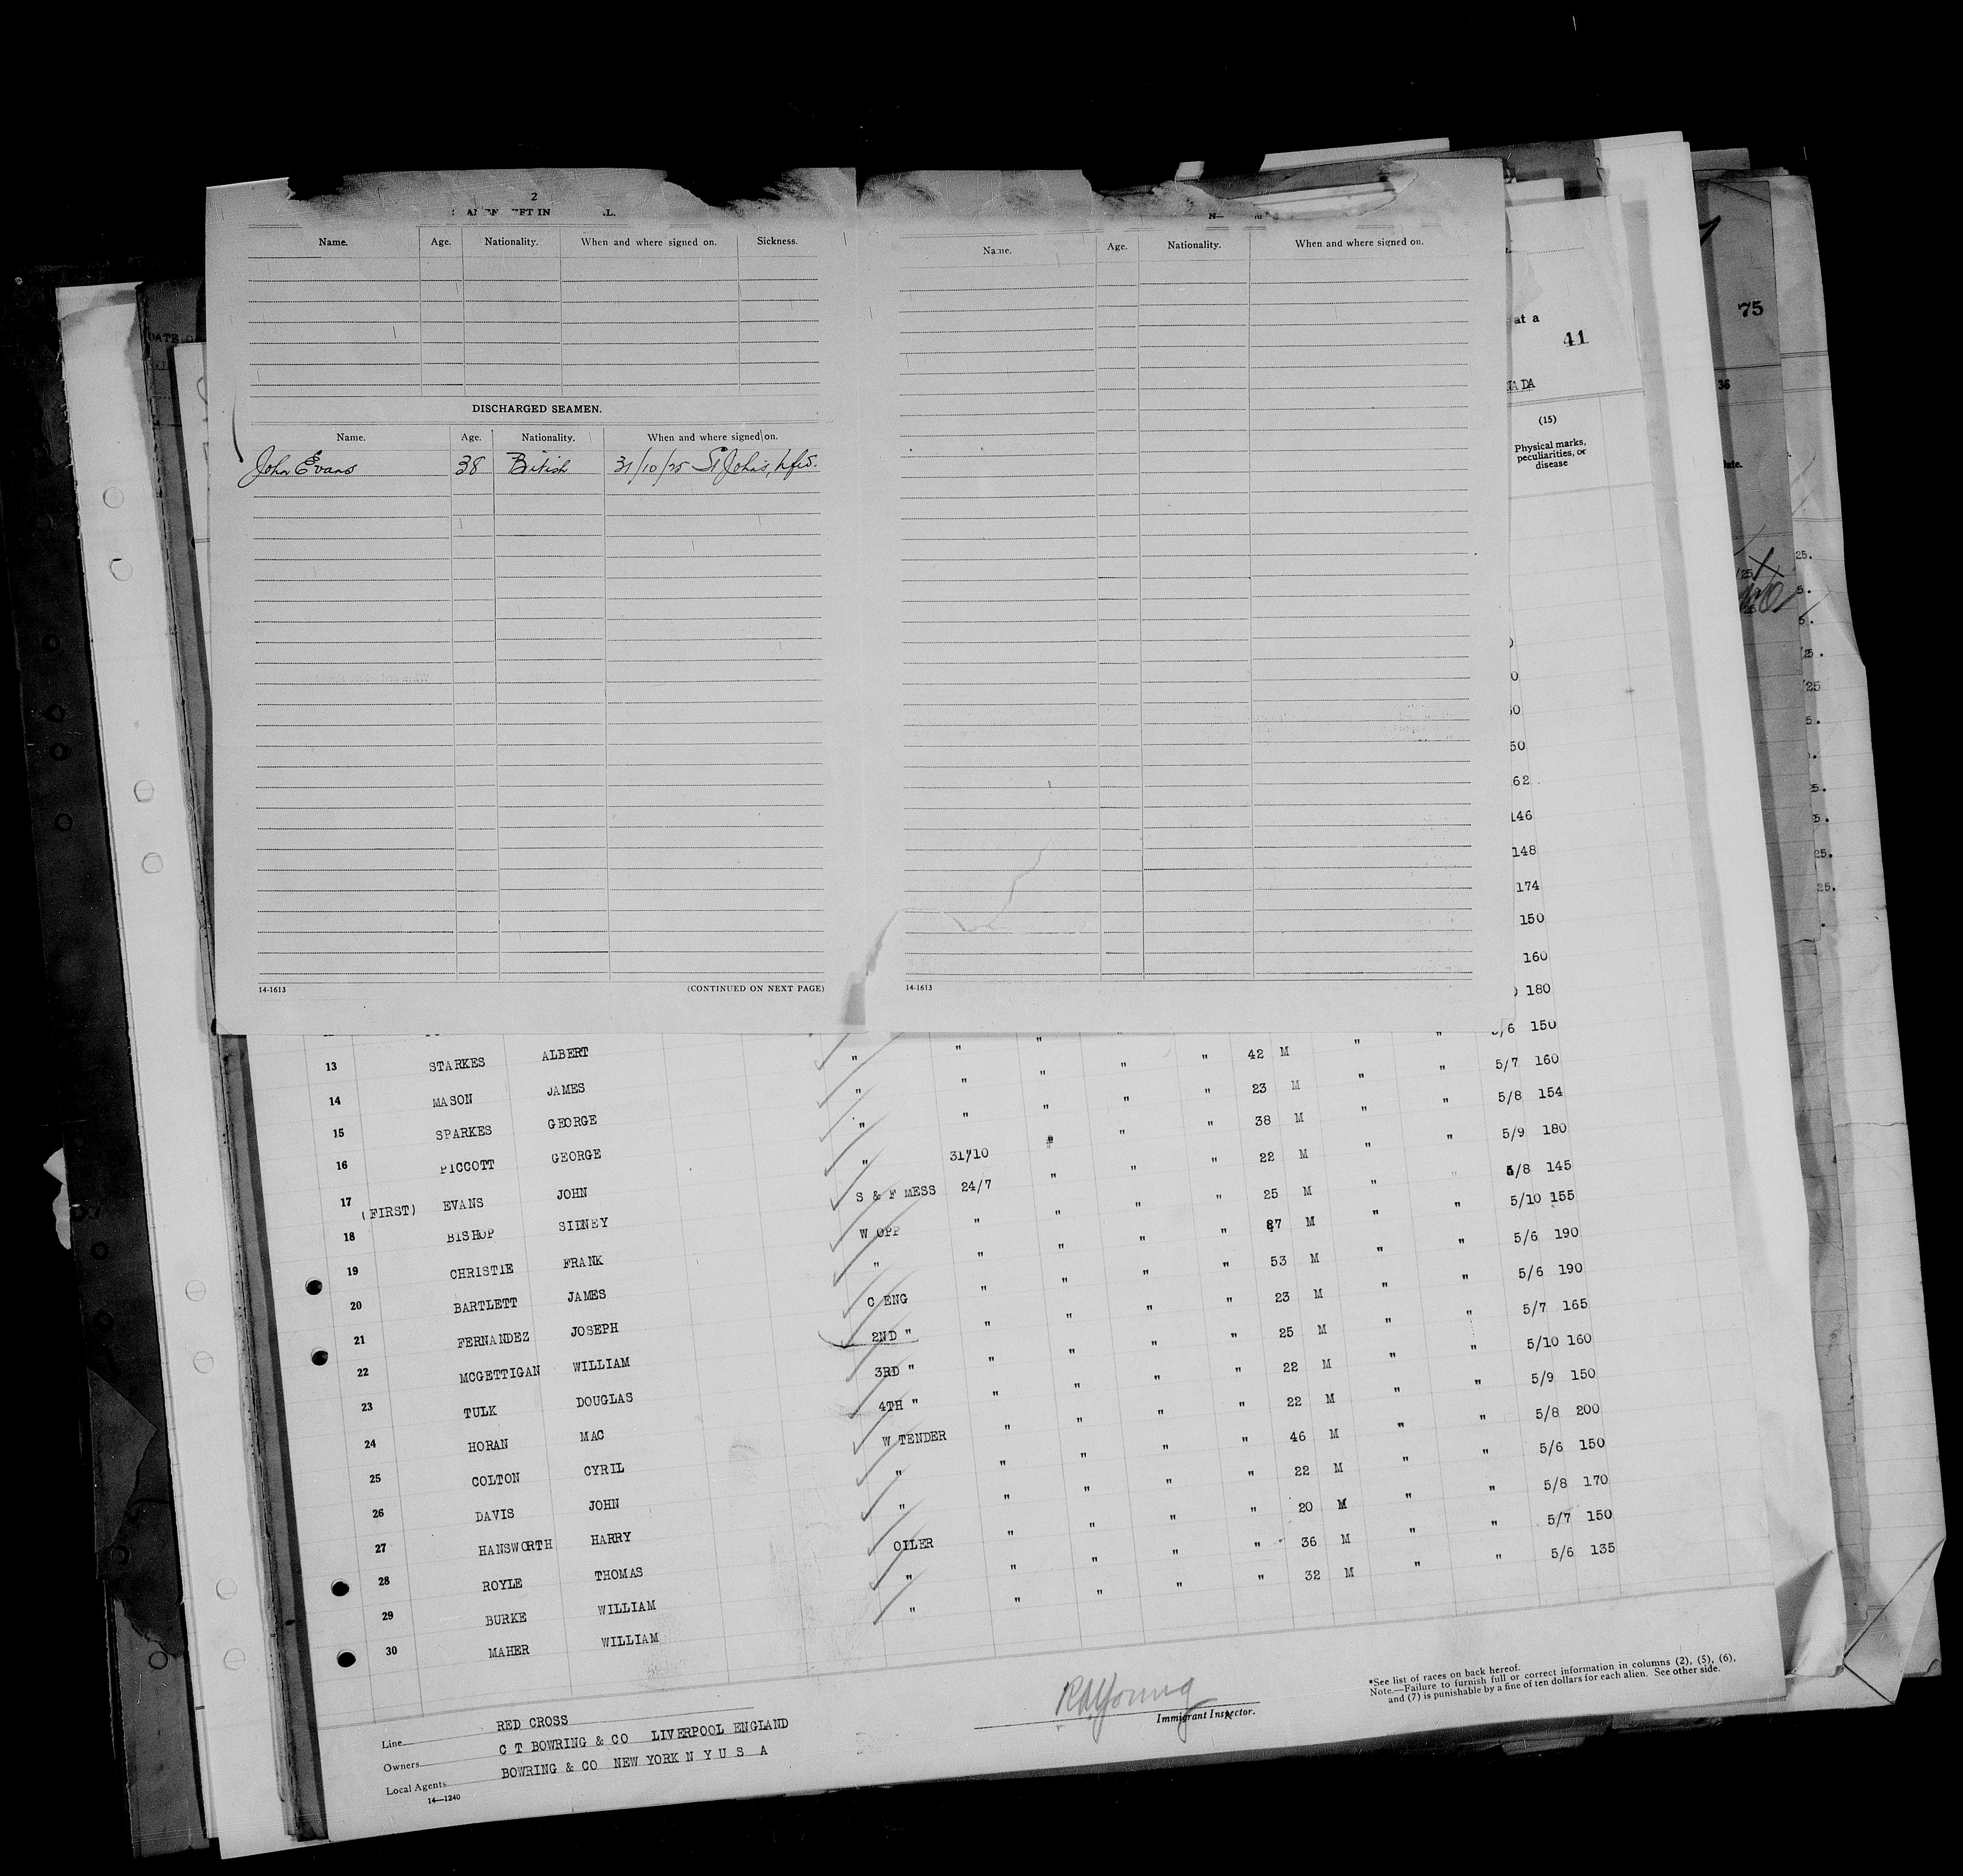 2
Name. Age. Nationality. When and where signed on. Sickness.
DISCHARGED SEAMEN.
Name. Age. Nationality. When and where signed on.
John Evans 38 British 31/10/25 St John's, Nfld.
14-1613 (CONTINUED ON NEXT PAGE)
Name. Age. Nationality. When and where signed on.
14-1613
at a
41
75
36
(15)
Physical marks,
peculiarities, or
disease
146
148
174
150
160
180
150
13 STARKES ALBERT " " " " " 42 M " " 5/7 160
14 MASON JAMES " " " " " 23 M " " 5/8 154
15 SPARKES GEORGE " " " " " 38 M " " 5/9 180
16 PICCOTT GEORGE " 31/10 " " 22 M " " 5/8 145
17 (FIRST) EVANS JOHN S & F MESS 24/7 " " " 25 M " " 5/10 155
18 BISHOP SIDNEY W OPP " " " " M " " 5/6 190
19 CHRISTIE FRANK " " " " " 53 M " " 5/6 190
20 BARTLETT JAMES C ENG " " " " 23 M " " 5/7 165
21 FERNANDEZ JOSEPH 2ND " " " " " 25 M " " 5/10 160
22 MCGETTIGAN WILLIAM 3RD " " " " " 22 M " " 5/9 150
23 TULK DOUGLAS 4TH " " " " " 22 M " " 5/8 200
24 HORAN MAC W TENDER " " " " 46 M " " 5/6 150
25 COLTON CYRIL " " " " " 22 M " " 5/8 170
26 DAVIS JOHN " " " " " 20 M " " 5/7 150
27 HANSWORTH HARRY OILER " " " " 36 M " " 5/6 135
28 ROYLE THOMAS " " " " " 32 M " "
29 BURKE WILLIAM "
30 MAHER WILLIAM
Line RED CROSS
Owners C T BOWRING & CO LIVERPOOL ENGLAND
Local Agents BOWRING & CO NEW YORK N Y U S A
14—1240
Immigrant Inspector.
*See list of races on back hereof.
Note.—Failure to furnish full or correct information in columns (2), (5), (6),
and (7) is punishable by a fine of ten dollars for each alien. See other side.